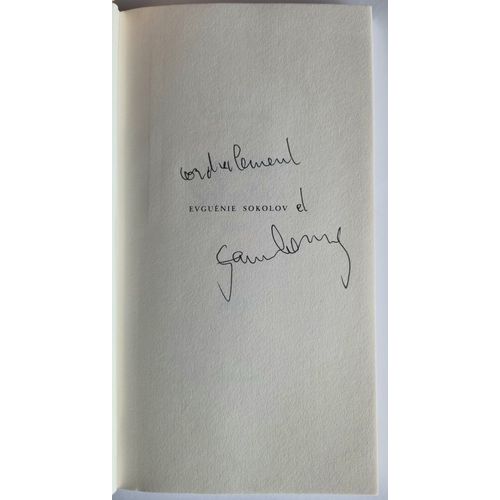 cordialement
EVGUÉNIE SOKOLOV et
Gainsbourg